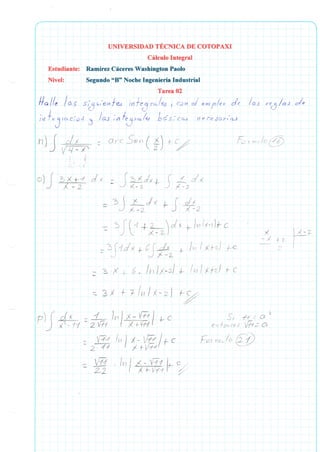 UNIVERSIDAD TÉCNICA DE COTOPAXI
Cálculo Integral
Estudiante: Ramírez Cáceres Washington Paolo
Nivel: Segundo “B” Noche Ingeniería Industrial
Tarea 02
Halle las siguientes integrales, con el empleo de las reglas de
integración y las integrales básicas necesarias
n) ∫ dx / √(4 - x²) = arc Sen (x/2) + c //
o) ∫ (3x+1)/(x-2) dx = ∫ 3x dx/(x-2) + ∫ 1/(x-2) dx
= 3 ∫ x/(x-2) dx + ∫ dx/(x-2)
= 3 ∫ (1 + 2/(x-2)) dx + ln|x+2| + c
= 3 ∫ 1 dx + 6 ∫ dx/(x-2) + ln|x+2| + c
= 3x + 6 . ln|x-2| + ln|x+2| + c
= 3x + 7 ln|x-2| + c //
p) ∫ dx/(x²-11) = 1/(2√11) ln |(x-√11)/(x+√11)| + c
Si 11 = a²
entonces √11 = a
= √11/(2·11) ln |(x-√11)/(x+√11)| + c
Formula 21
= √11/22 . ln |(x-√11)/(x+√11)| + c //